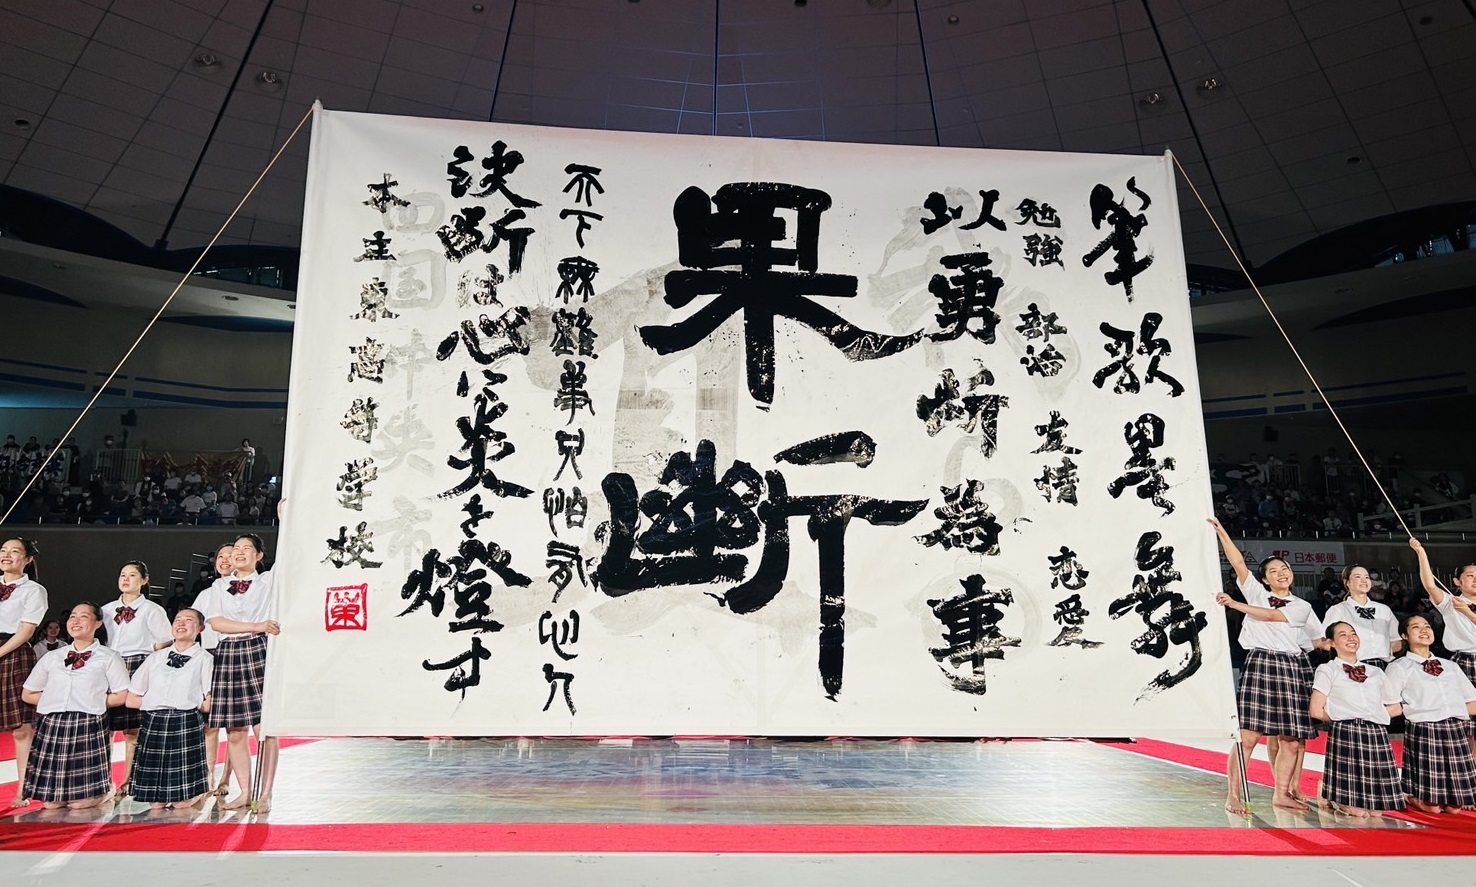 筆歌墨舞
勉強 部活 友情 恋愛
以勇断為事
果斷
天下無難事只怕有心人
決断は心に炎を燈す
本庄東高等学校
東
四国中央市
日本郵便